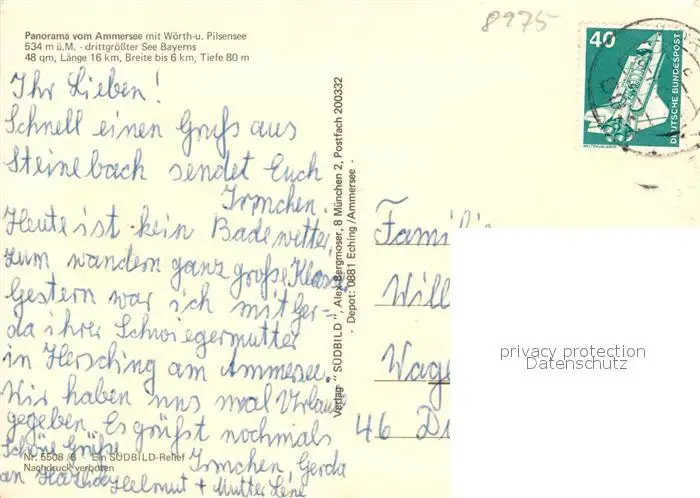 Panorama vom Ammersee mit Wörth-u. Pilsensee
534 m ü.M. - drittgrößter See Bayerns
48 qm, Länge 16 km, Breite bis 6 km, Tiefe 80 m
8975
40
DEUTSCHE BUNDESPOST
WELTRAUMLABOR
Ihr Lieben!
Schnell einen Gruß aus
Steinebach sendet Euch
Irmchen.
Heute ist kein Badewetter,
zum wandern ganz große Klasse
Gestern war ich mit Ger=
da ihrer Schwiegermutter
in Hersching am Ammersee.
Wir haben uns mal Urlaub
gegeben. Es grüßt nochmals
Schöne Grüße Irmchen, Gerda
an Helmut + Mutter Lene
Nr. 5508 / Ein SÜDBILD-Relief
Nachdruck verboten
Verlag "SÜDBILD", Alex Bergmoser, 8 München 2, Postfach 200332
- Depot: 0881 Eching/Ammersee -
Familie
Will
Wage
46 D
privacy protection
Datenschutz